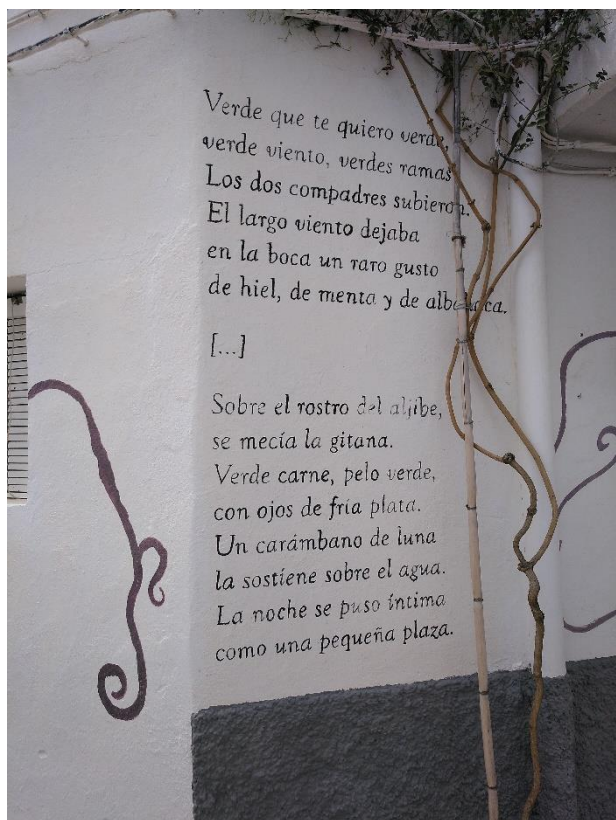 Verde que te quiero verde,
verde viento, verdes ramas
Los dos compadres subieron.
El largo viento dejaba
en la boca un raro gusto
de hiel, de menta y de albahaca.
[...]
Sobre el rostro del aljibe,
se mecía la gitana.
Verde carne, pelo verde,
con ojos de fría plata.
Un carámbano de luna
la sostiene sobre el agua.
La noche se puso íntima
como una pequeña plaza.